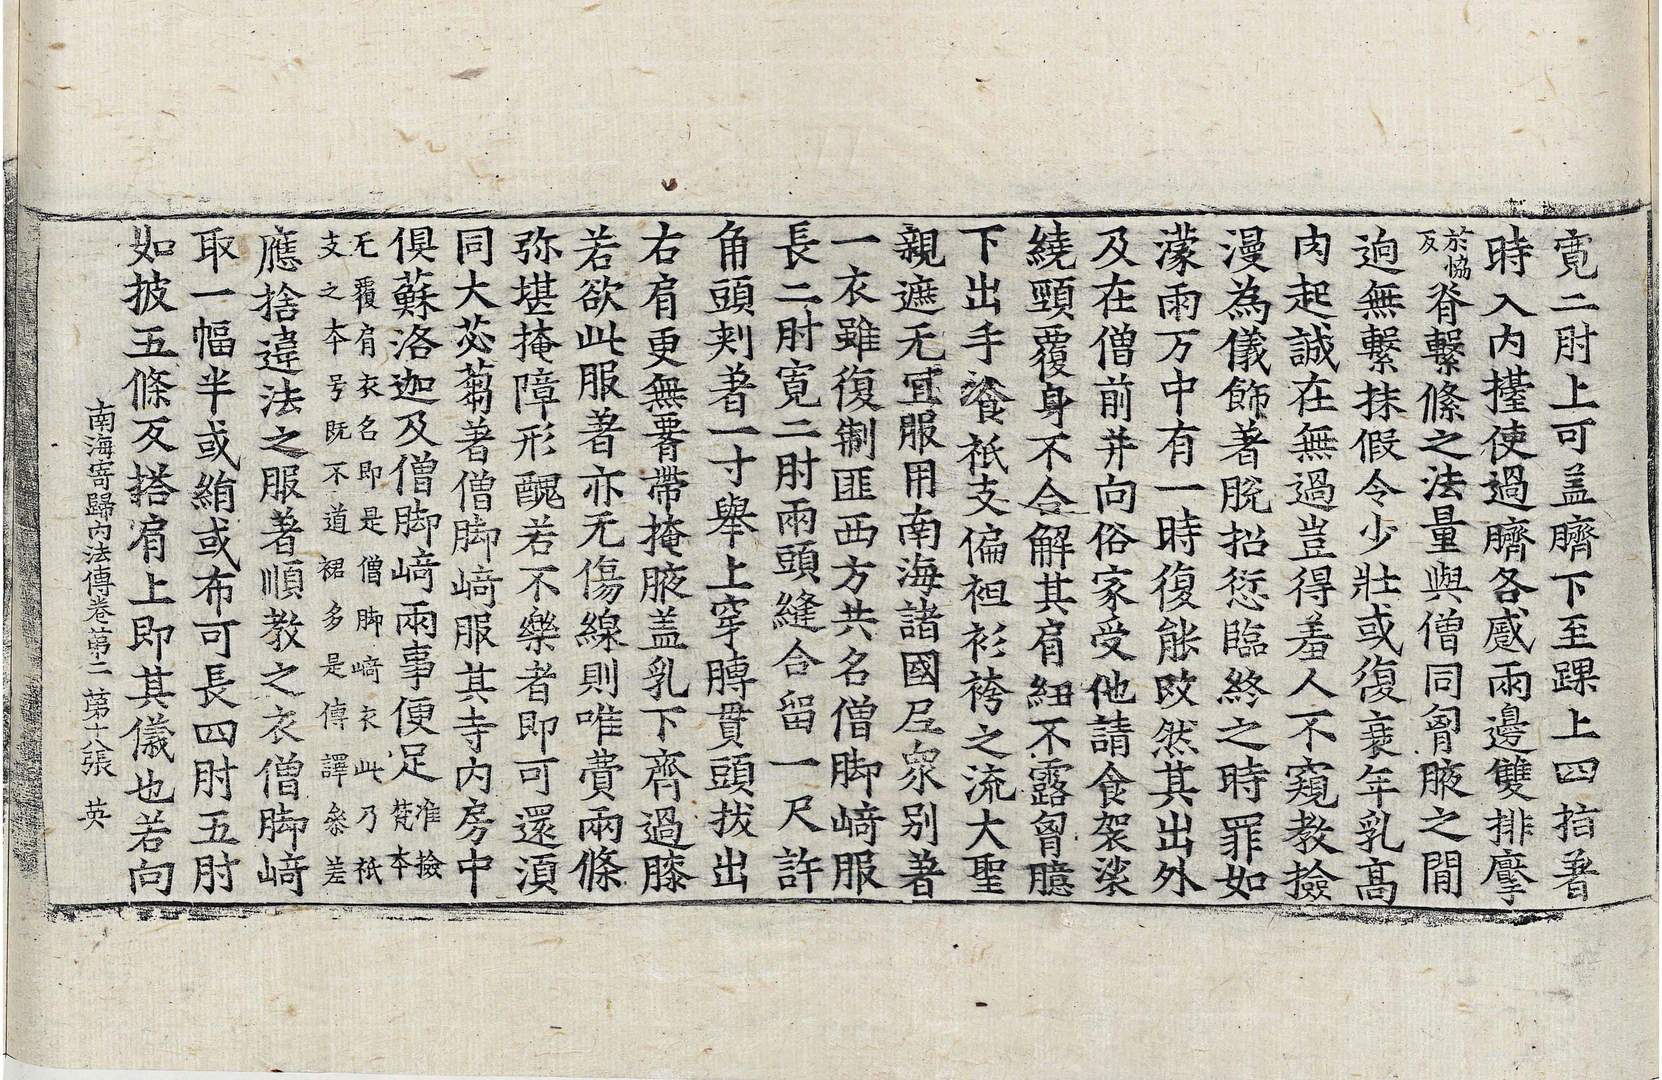 寬二肘上可盖臍下至踝上四指著
時入內擡使過臍各感兩邊雙排擪
於協反脊繫絛之法量與僧同胷腋之間
逈無繫抹假令少壯或復衰年乳高
肉起誠在無過豈得羞人不窺教撿
漫為儀飾著脫招愆臨終之時罪如
濛雨万中有一時復能改然其出外
及在僧前并向俗家受他請食袈裟
繞頸覆身不合解其肩紐不露胷臆
下出手飡祇支偏袒衫袴之流大聖
親遮无宜服用南海諸國尼衆別著
一衣雖復制匪西方共名僧脚崎服
長二肘寬二肘兩頭縫合留一尺許
角頭刾著一寸舉上穿膊貫頭拔出
右肩更無𦝫帶掩腋盖乳下齊過膝
若欲此服著亦无傷線則唯費兩條
弥堪掩障形醜若不樂者即可還湏
同大苾蒭著僧脚崎服其寺內房中
俱蘇洛迦及僧脚崎兩事便足准撿梵本
无覆肩衣名即是僧脚崎衣此乃祇
支之本号既不道裙多是傳譯叅差
應捨違法之服著順教之衣僧脚崎
取一幅半或絹或布可長四肘五肘
如披五條反搭肩上即其儀也若向
南海寄歸內法傳卷第二 第十八張 英